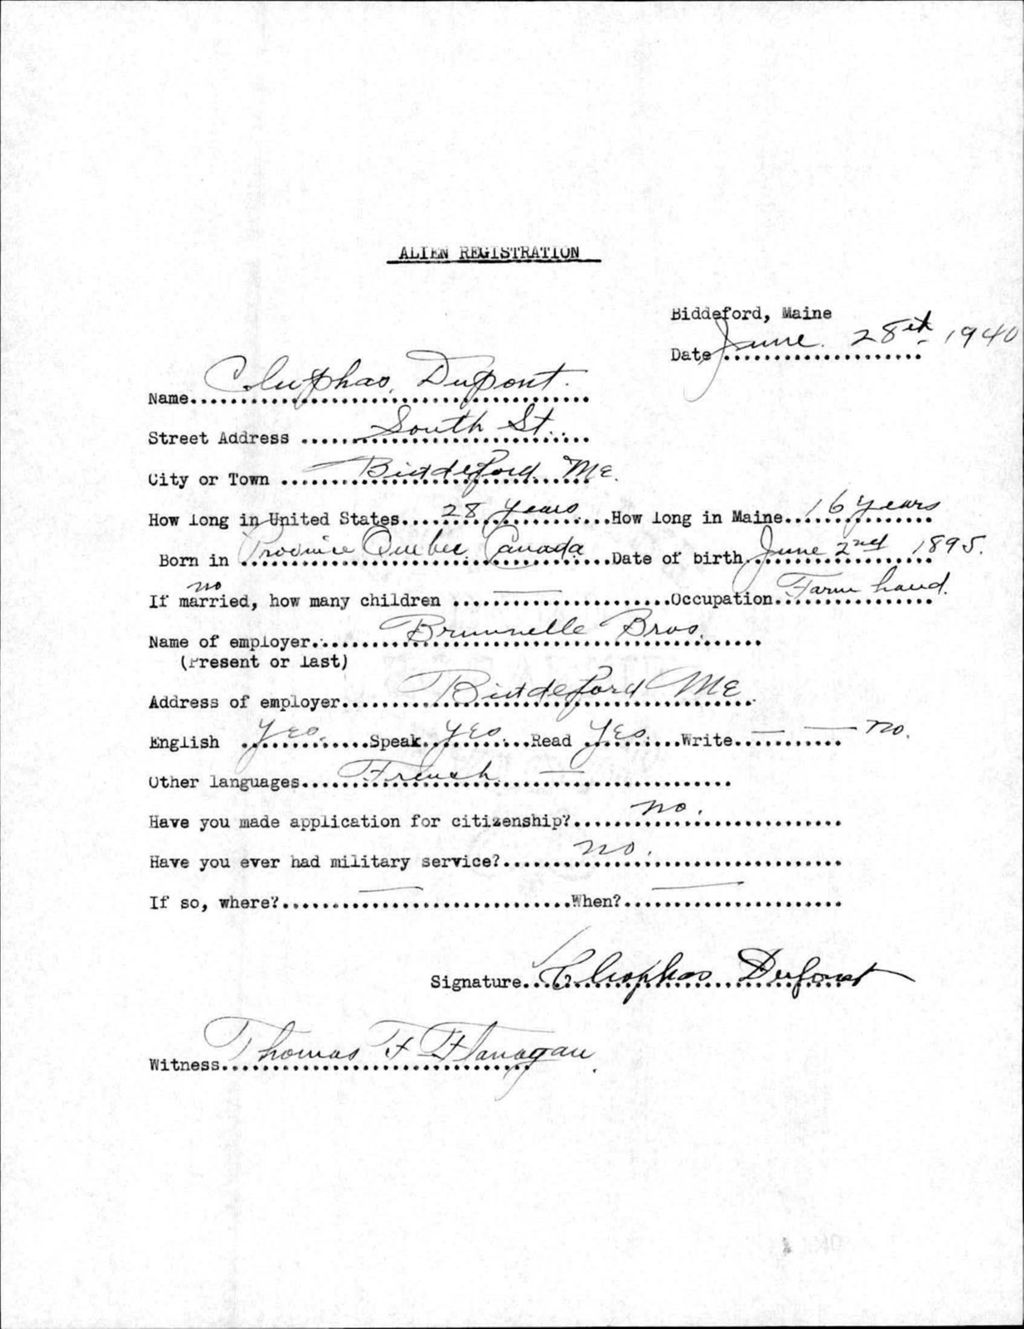 ALIEN REGISTRATION
Biddeford, Maine
Date June 28th 1940
Name Cluphas Dupont.
Street Address South St.
City or Town Biddeford Me.
How long in United States 28 years How long in Maine 16 years
Born in Province Quebec Canada Date of birth June 2nd 1895.
no
If married, how many children — Occupation Farm hand.
Name of employer Brunnelle Bros.
(Present or last)
Address of employer Biddeford Me.
English Yes. Speak Yes. Read Yes. Write — — no.
Other languages French —
Have you made application for citizenship? no.
Have you ever had military service? no.
If so, where? — When? —
Signature Cleophas Dupont
Witness Thomas F Flanagan.